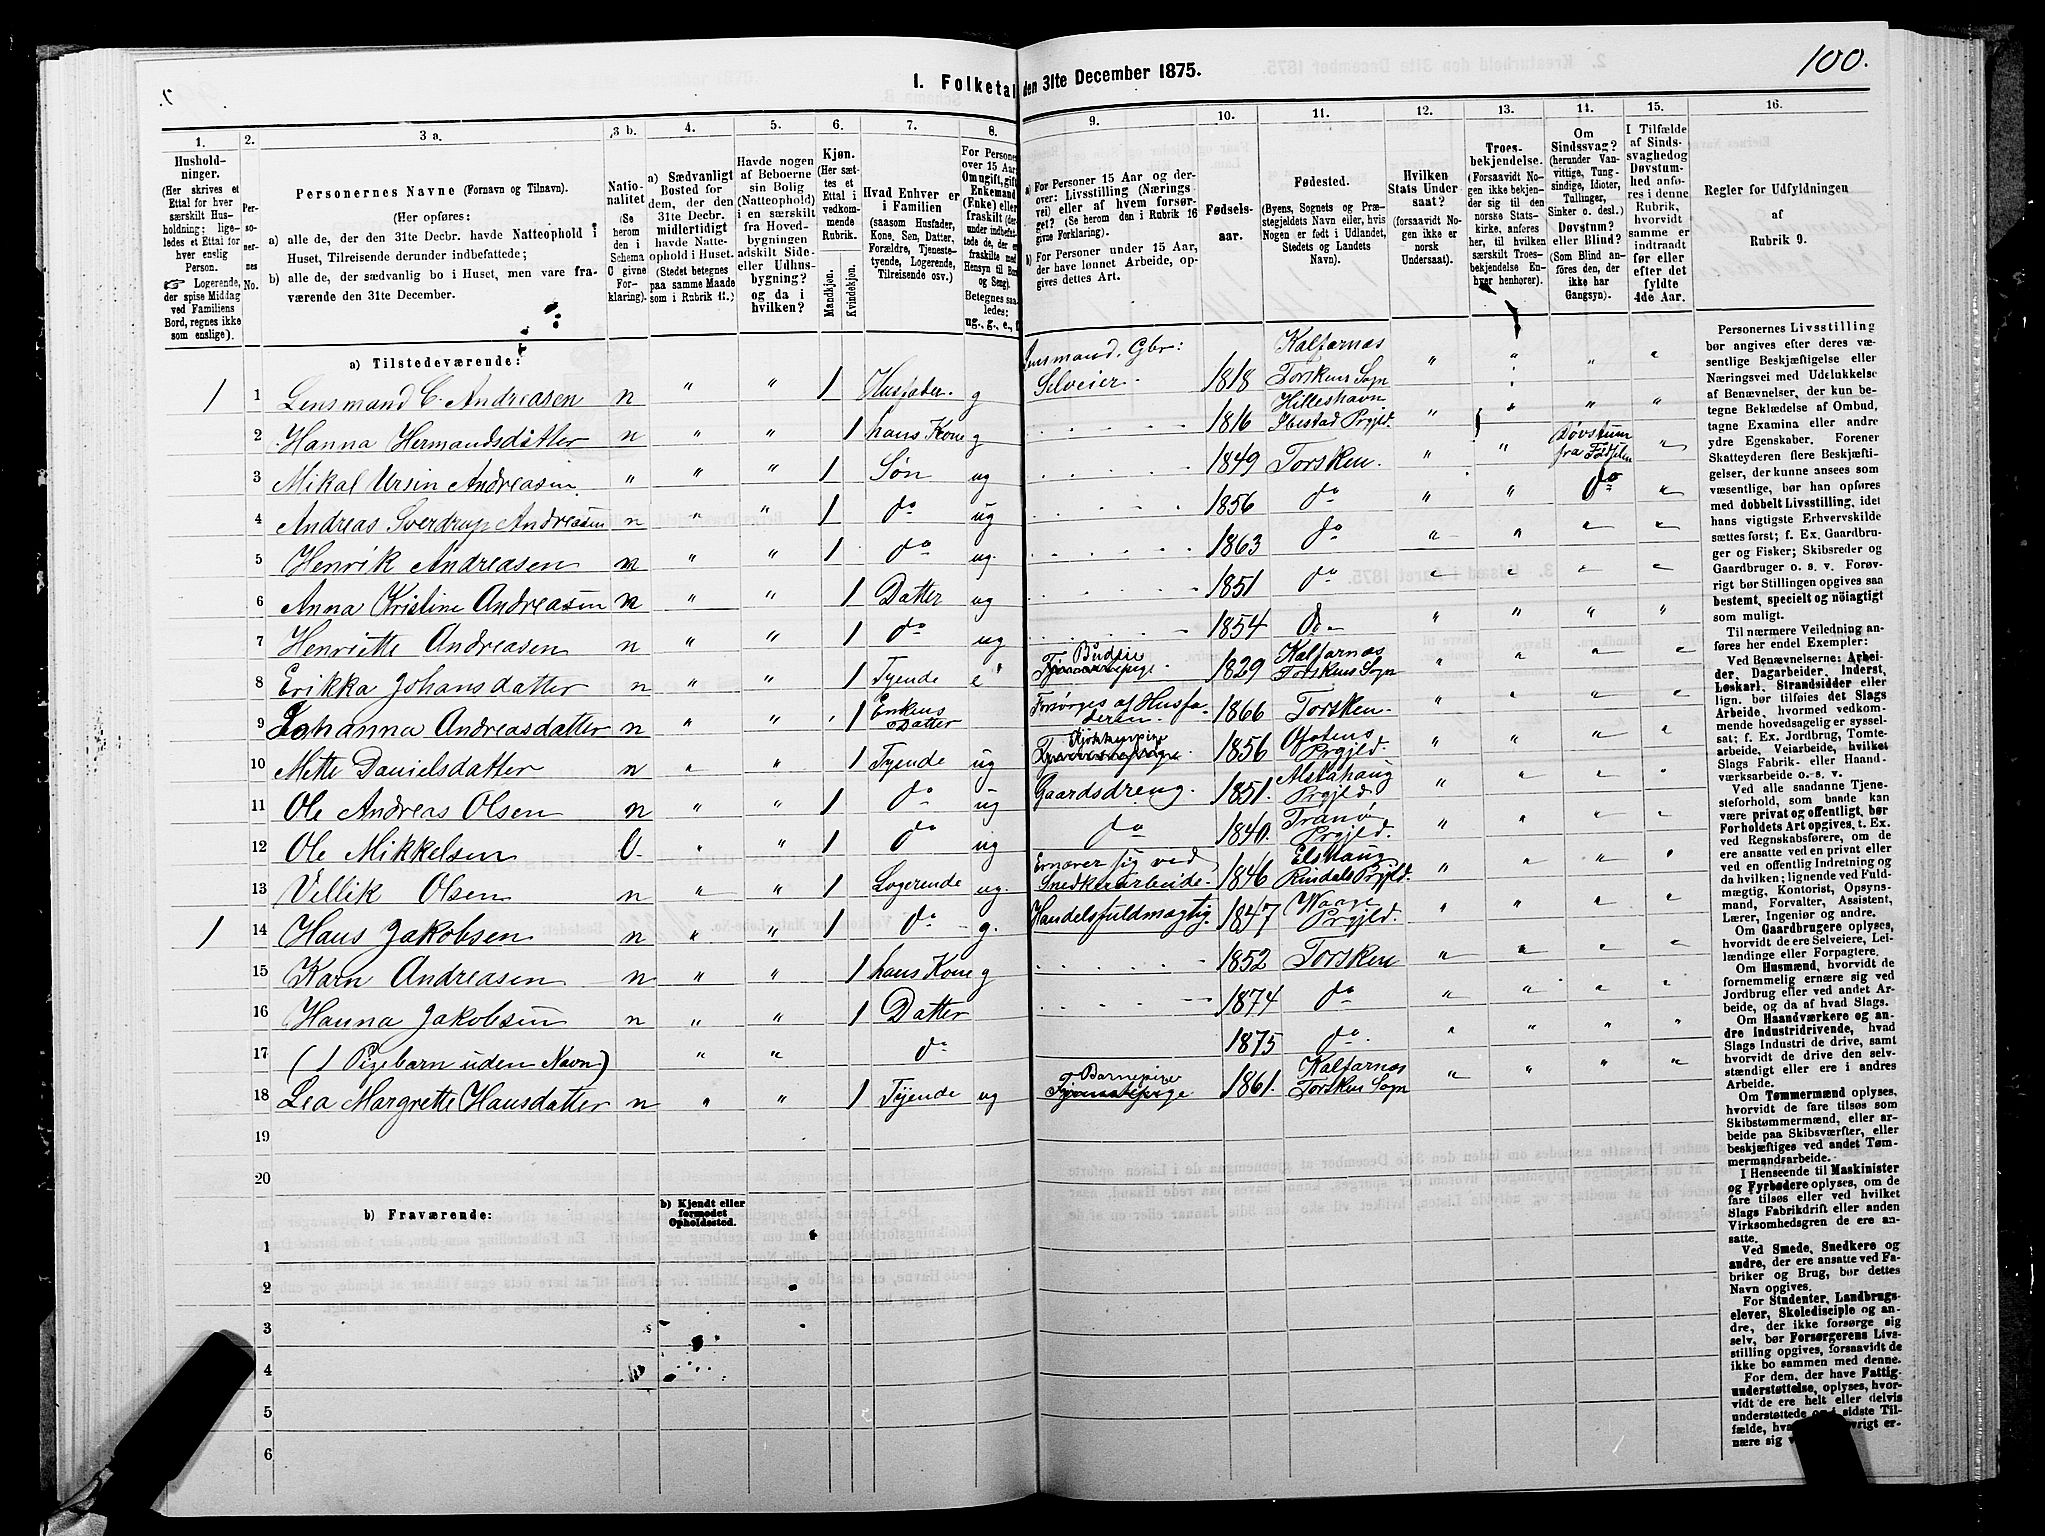 100.
1. Folketal den 31te December 1875.
1.
Hushold-
ninger.
(Her skrives et
Ettal for hver
særskilt Hus-
holdning; lige-
ledes et Ettal for
hver enslig
Person.
☞ Logerende,
der spise Middag
ved Familiens
Bord, regnes ikke
som enslige).
2.
Per-
so-
ner-
nes
No.
3 a.
Personernes Navne (Fornavn og Tilnavn).
(Her opføres:
a) alle de, der den 31te Decbr. havde Natteophold i
Huset, Tilreisende derunder indbefattede;
b) alle de, der sædvanlig bo i Huset, men vare fra-
værende den 31te December.
3 b.
Natio-
nalitet
(Se
herom
den i
Schema
C givne
For-
klaring).
4.
a) Sædvanligt
Bosted for
dem, der den
31te Decbr.
midlertidigt
havde Natte-
ophold i Huset.
(Stedet betegnes
paa samme Maade
som i Rubrik 11.)
5.
Havde nogen
af Beboerne
sin Bolig
(Natteophold)
i en særskilt
fra Hoved-
bygningen
adskilt Side-
eller Udhus-
bygning?
og da i
hvilken?
6.
Kjøn.
(Her sæt-
tes et
Ettal i
vedkom-
mende
Rubrik.
Mandkjøn.
Kvindekjøn.
7.
Hvad Enhver er
i Familien
(saasom Husfader,
Kone, Søn, Datter,
Forældre, Tjeneste-
tyende, Logerende,
Tilreisende osv.)
8.
For Personer
over 15 Aar:
Om ugift, gift,
Enkemand
(Enke) eller
fraskilt
Betegnes saa-
ledes:
ug., g., e., f.
9.
a) For Personer 15 Aar og der-
over: Livsstilling (Nærings-
vei) eller af hvem forsør-
get? (Se herom den i Rubrik 16
givne Forklaring).
b) For Personer under 15 Aar,
der have lønnet Arbeide, op-
gives dettes Art.
10.
Fødsels-
aar.
11.
Fødested.
(Byens, Sognets og Præ-
stegjeldets Navn eller, hvis
Nogen er født i Udlandet,
Stedets og Landets
Navn).
12.
Hvilken
Stats Under-
saat?
(forsaavidt No-
gen ikke er
norsk
Undersaat).
13.
Troes-
bekjendelse.
(Forsaavidt No-
gen ikke bekjen-
der sig til den
norske Stats-
kirke, anføres
her, til hvilken
særskilt Troes-
bekjendelse En-
hver henhører).
14.
Om
Sindssvag?
(herunder Van-
vittige, Tung-
sindige, Idioter,
Tullinger,
Sinker o. desl.)
Døvstum?
eller Blind?
(Som Blind an-
føres den, der
ikke har
Gangsyn).
15.
I Tilfælde
af Sinds-
svaghed og
Døvstum-
hed anfø-
res i denne
Rubrik,
hvorvidt
samme er
indtraadt
før eller
efter det
fyldte
4de Aar.
16.
Regler for Udfyldningen
af
Rubrik 9.
a) Tilstedeværende:
1 1 Lensmand C. Andreasen n " " 1 Husfader g Lensmand. Gbr: Selveier. 1818 Kalfarnæs Torskens Sogn " " " "
2 Hanna Hermandsdatter n " " 1 hans Kone g 1816 Hilleshavn Ibestad Prgjld. " " " "
3 Mikal Ursin Andreasen " " " 1 Søn ug 1849 Torsken. " " Døvstum fra Fødselen "
4 Andreas Sverdrup Andreasen n " " 1 do ug 1856 do " " do "
5 Henrik Andreasen n " " 1 do ug. 1863 do " " " "
6 Anna Kristine Andreasen n " " 1 Datter ug 1851 do " " " "
7 Henriette Andreasen n " " 1 do ug 1854 do " " " "
8 Erikka Johansdatter n " " 1 Tyende e Budeie 1829 Kalfarnæs Torskens Sogn " " " "
9 Johanna Andreasdatter n " " 1 Enkens Datter Forsørges af Husfaderen. 1866 Torsken. " " " "
10 Mette Danielsdatter n " " 1 Tyende ug Kjøkkenpige 1856 Ofotens Prgjld. " " " "
11 Ole Andreas Olsen n " " 1 do ug Gaardsdreng. 1851. Alstahaug Prgjld. " " " "
12 Ole Mikkelsen " " 1 do ug do 1840. Tranø Prgjld. " " " "
13 Villik Olsen n " " 1 Logerende ug. Ernærer sig ved Snedkerarbeide. 1846 Rindals Prgjld. " " " "
1 14 Hans Jakobsen n " " 1 do g. Handelsfuldmægtig. 1847 Waage Prgjld. " " " "
15 Karn Andreasen n " " 1 hans Kone g 1852 Torsken " " " "
16 Hanna Jakobsen n " " 1 Datter 1874 do " " " "
17 (1 Pigebarn uden Navn) " " do 1875 do " " " "
18 Lea Margrette Hansdatter n " " 1 Tyende ug Barnepige 1861. Kalfarnæs Torsken Sogn " " " "
19
20
b) Fraværende:
b) Kjendt eller
formodet
Opholdssted.
1
2
3
4
5
6
Personernes Livsstilling
bør angives efter deres væ-
sentlige Beskjæftigelse eller
Næringsvei med Udelukkelse
af Benævnelser, der kun be-
tegne Beklædelse af Ombud,
tagne Examina eller andre
ydre Egenskaber. Forener
Skatteyderen flere Beskjæfti-
gelser, der kunne ansees som
væsentlige, bør han opføres
med dobbelt Livsstilling, idet
hans vigtigste Erhvervskilde
sættes først; f. Ex. Gaardbru-
ger og Fisker; Skibsreder og
Gaardbruger o. s. v. Forøv-
rigt bør Stillingen opgives saa
bestemt, specielt og nøiagtigt
som muligt.
Til nærmere Veiledning an-
føres her endel Exempler:
Ved Benævnelserne: Arbei-
der, Dagarbeider, Inderst,
Løskarl, Strandsidder eller
lign. bør tilføies det Slags
Arbeide, hvormed vedkom-
mende hovedsagelig er syssel-
sat; f. Ex. Jordbrug, Tomte-
arbeide, Veiarbeide, hvilket
Slags Fabrik- eller Haand-
værksarbeide o. s. v.
Ved alle saadanne Tjene-
steforhold, som baade kan
være privat og offentligt, bør
Forholdets Art opgives, t. Ex.
ved Regnskabsførere, om de
ere ansatte ved en privat eller
ved en offentlig Indretning og
da hvilken; lignende ved Fuld-
mægtig, Kontorist, Opsyns-
mand, Forvalter, Assistent,
Lærer, Ingeniør og andre.
Om Gaardbrugere oplyses,
hvorvidt de ere Selveiere, Lei-
lændinge eller Forpagtere.
Om Husmænd, hvorvidt de
fornemmelig ernære sig ved
Jordbrug eller ved andet Ar-
beide, og da af hvad Slags.
Om Haandværkere og an-
dre Industridrivende, hvad
Slags Industri de drive, samt
hvorvidt de drive den selv-
stændigt eller ere i andres
Arbeide.
Om Tømmermænd oplyses,
hvorvidt de fare tilsøs som
Skibstømmermænd, eller ar-
beide paa Skibsværfter, eller
beskjæftiges ved andet Tøm-
mermandsarbeide.
I Henseende til Maskinister
og Fyrbødere oplyses, om de
fare tilsøs eller ved hvilket
Slags Fabrikdrift eller anden
Virksomhedsgren de ere an-
satte.
Ved Smede, Snedkere og
andre, der ere ansatte ved Fa-
briker og Brug, bør dettes
Navn opgives.
For Studenter, Landbrugs-
elever, Skoledisciple og an-
dre, der ikke forsørge sig
selv, bør Forsørgerens Livs-
stilling opgives, forsaavidt de
ikke bo sammen med denne.
For dem, der have Fattig-
understøttelse, oplyses, hvor-
vidt de ere helt eller delvis
understøttede og i sidste Til-
fælde, øvrigt er-
nære sig